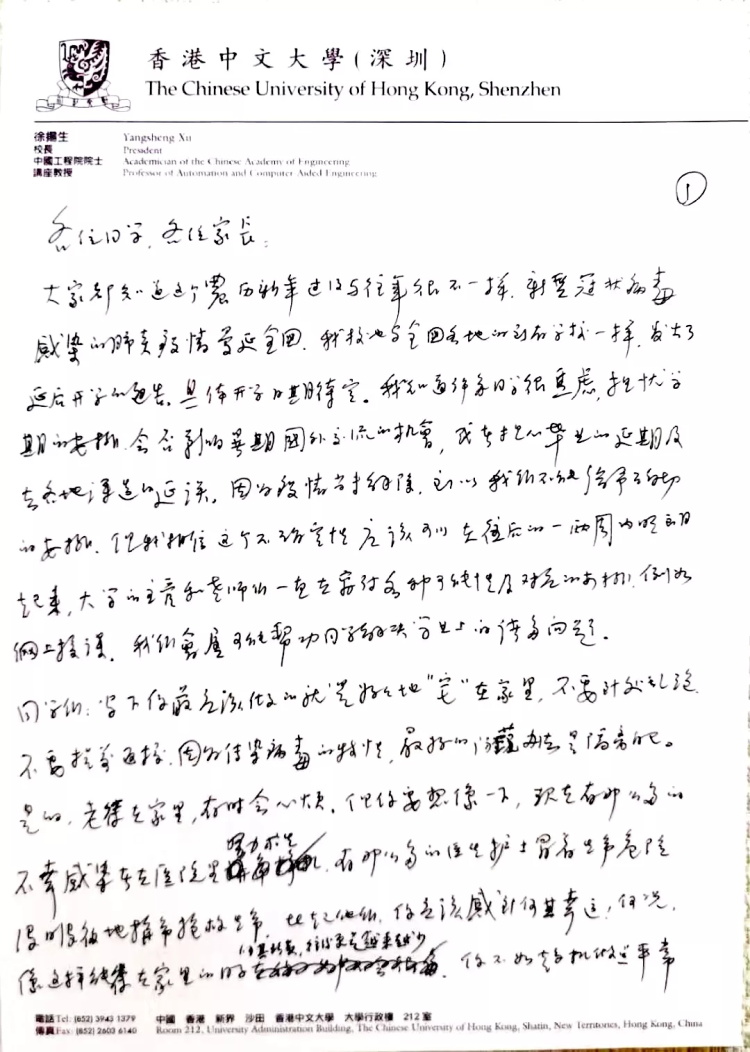 香港中文大學(深圳)
The Chinese University of Hong Kong, Shenzhen
徐揚生 Yangsheng Xu
校長 President
中國工程院院士 Academician of the Chinese Academy of Engineering
講座教授 Professor of Automation and Computer Aided Engineering
1
各位同学,各位家长:
大家都知道这个農历新年过得与往年很不一样,新型冠状病毒
感染的肺炎疫情蔓延全国,我校也与全国各地的学校一样,发出了
延后开学的通告,具体开学日期待定。我知道许多同学很焦虑,担忧学
期的安排,会否影响暑期國外交流的机會,或者担心毕业的延期及
去各地深造的延误。因为疫情尚未解除,所以我们不能给予确切
的安排,但我相信这个不确定性应该可以在往后的一两周内明朗
起来,大学的主管和老师们一直在商讨各种可能性及对应的安排,例如
網上授课。我们會尽可能帮助同学解决学业上的诸多问题。
同学们:当下你最应该做的就是好好地"宅"在家里,不要外出乱跑,
不要提前返校,因为传染病毒的特性,最好的办法是隔离吧。
是的,老待在家里,有时会心烦。但你要想像一下,现在有那么多的
努力求生
不幸感染者在医院里,有那么多的医生护士冒着生命危险
没日没夜地拼命抢救生命,比起他们,你应该感到何其幸运!何况,
像这样能待在家里的日子,你不如趁机做些平常
電話 Tel: (852) 3943 1379 中國 香港 新界 沙田 香港中文大學 大學行政樓 212 室
傳真 Fax: (852) 2603 6140 Room 212, University Administration Building, The Chinese University of Hong Kong, Shatin, New Territories, Hong Kong, China